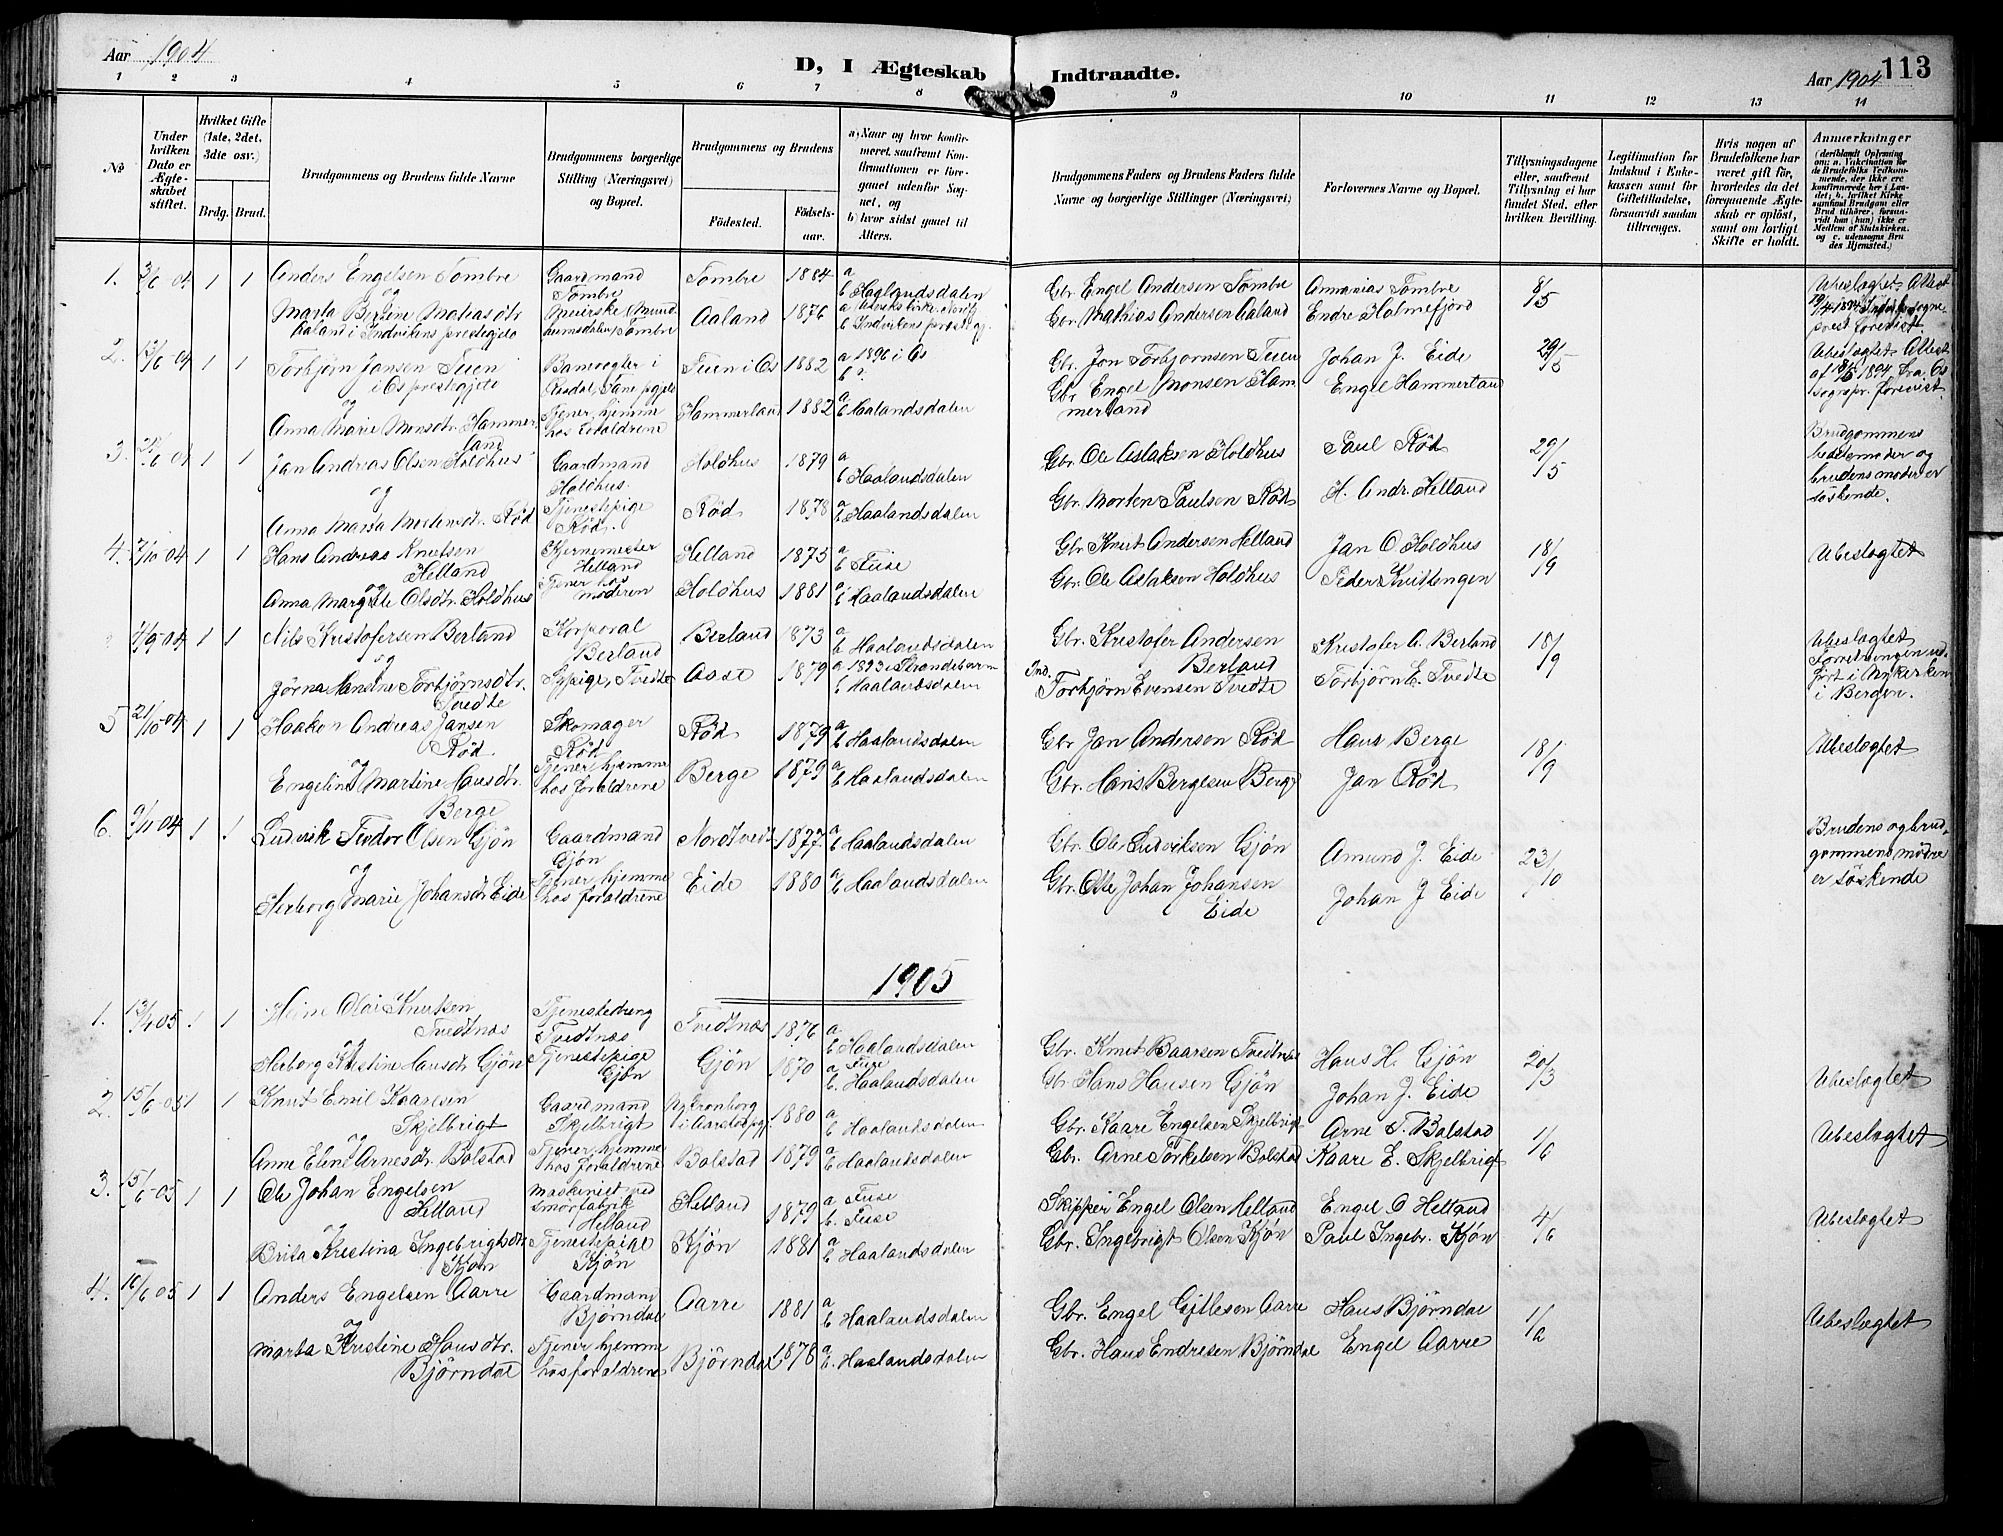 Aar 1904
D, I Ægteskab Indtraadte.
Aar 1904 113
1 2 3 4 5 6 7 8 9 10 11 12 13 14
No
Under hvilken Dato er Ægteskabet stiftet.
Hvilket Gifte (1ste, 2det, 3die osv.)
Brdg. Brud.
Brudgommens og Brudens fulde Navne
Brudgommens borgerlige Stilling (Næringsvei) og Bopæl.
Brudgommens og Brudens
Fødested. Fødselsaar.
a) Naar og hvor konfirmeret, saafremt Konfirmationen er foregaaet udenfor Sognet, og
b) hvor sidst gaaet til Alters.
Brudgommens Faders og Brudens Faders fulde Navne og borgerlige Stillinger (Næringsvei)
Forlovernes Navne og Bopæl.
Tillysningsdagene eller, saafremt Tillysning ei har fundet Sted, efter hvilken Bevilling.
Legitimation for Indskud i Enkekassen samt for Giftetilladelse, forsaavidt saadan tiltrænges.
Hvis nogen af Brudefolkene har været gift før, hvorledes da det foregaaende Ægteskab er opløst, samt om lovligt Skifte er holdt.
Anmærkninger
1. 3/6 04 1 1 Anders Engelsen Tombre Gaardmand Tombre Tombre 1884 a b Haalandsdalen Gbr. Engel Andersen Tombre Ananias Tombre 8/5 Ubeslægtet. Attest
og
Marta Bertine Matiasdtr. Aaland i Indvikens prestegjeld Aaland 1876 b Indvikens prest.gj. Gbr. Mathias Andersen Aaland Endre Holmefjord
2. 12/6 04 1 1 Torbjørn Jansen Tuen i Os prestegjeld Tuen i Os 1882 a 1896 i Os b ? Gbr. Jon Torbjørnsen Tuen Johan J. Eide 29/5 Ubeslægtet. Attest
og
Anna Marie Monsdtr. Hammerland Tjener hjemme hos forældrene Hammerland 1882 a b Haalandsdalen Gbr. Engel Monsen Hammerland Engel Hammerland
3. 1 1 Jan Andreas Olsen Holdhus Gaardmand Holdhus. Holdhus 1879 a b Haalandsdalen Gbr. Ole Aslaksen Holdhus Paul Rød 29/5 Brudgommens bedstemoder og brudens moder er søskende.
og
Anna Marta Mortensdtr. Rød Tjenestepige Rød. Rød 1878 a b Haalandsdalen Gbr. Morten Paulsen Rød H. Andr. Helland
4. 2/10 04 1 1 Hans Andreas Knutsen Helland Kjernemester Helland Helland 1875 a b Fuse Gbr. Knut Andersen Helland Jan O Holdhus 18/9 Ubeslægtet
og
Anna Margrete Olsdtr. Holdhus Tjener hos moderen Holdhus 1881 a b Haalandsdalen Gbr. Ole Aslaksen Holdhus Peder Kvittengen
04 1 1 Nils Kristofersen Berland Korporal Berland Berland 1873 a b Haalandsdalen Gbr. Kristofer Andersen Berland Kristofer A. Berland 18/9 Ubeslægtet Forretningen udført i Nykirken i Bergen.
og
Jørna Hansine Torbjørnsdtr. Tvedte Sypige, Tvedte 1879 a 1893 i Strandebarm b Haalandsdalen Ind. Torbjørn Evensen Tvedte Torbjørn E. Tvedte
5 21/10 04 1 1 Haakon Andreas Jansen Rød Skomager Rød Rød 1879 a b Haalandsdalen Gbr. Jan Andersen Rød Hans Berge 18/9 Ubeslægtet
og
Engeline Martine Hansdtr. Berge Tjener hjemme hos forældrene Berge 1879 a b Haalandsdalen Gbr. Hans Bergesen Berge Jan Rød
6. 9/11 04 1 1 Ludvik Teodor Olsen Gjøn Gaardmand Gjøn Nordtvedt 1877 a b Haalandsdalen Gbr. Ole Ludviksen Gjøn Amund J. Eide 23/10 Brudens og brudgommens mødre er søskende
og
Herborg Marie Johansdtr. Eide Tjener hjemme hos forældrene Eide 1880 a b Haalandsdalen Gbr. Johan Johansen Eide Johan J Eide
1905
1. 13/4 05 1 1 Olai Knutsen Tvedtnæs Tjenestedreng Tvedtnæs Tvedtnæs 1876 a b Haalandsdalen Gbr. Knut Baarsen Tvedtnæs Hans H. Gjøn 20/3 Ubeslægtet
og
Herborg Kristine Hansdtr. Gjøn Tjenestepige Gjøn Gjøn 1870 a Fuse b. Haalandsdalen Gbr. Hans Hansen Gjøn Johan J. Eide
2. 15/6 05 1 1 Knut Emil Kaaresen Skjelbrigt Gaardmand Skjelbrigt 1880 a b Haalandsdalen Gbr. Kaare Engelsen Skjelbrigt Arne T. Bolstad 1/6 Ubeslægtet
og
Anne Eline Arnesdtr. Bolstad Tjener hjemme hos forældrene Bolstad 1879 a b Haalandsdalen Gbr. Arne Torkelsen Bolstad Kaare E. Skjelbrigt
3. 15/6 05 1 1 Ole Johan Engelsen Helland Maskinist ved smørfabrik Helland Helland 1879 a Fuse b. Fuse Skipper Engel Olsen Helland Engel O Helland 4/6 Ubeslægtet
og
Brita Kristina Ingebrigtsdtr. Kjøn Tjenestepige Kjøn Kjøn 1881 a b Haalandsdalen Gbr. Ingebrigt Olsen Kjøn Paul Ingebr. Kjøn
4. 16/6 05 1 1 Anders Engelsen Aarre Gaardmand Bjørndal Aarre 1881 a b Haalandsdalen Gbr. Engel Gjtlesen Aarre Hans Bjørndal 1/6 Ubeslægtet
og
Marta Kristine Hansdtr. Bjørndal Tjener hjemme hos forældrene Bjørndal 1878 a b. Haalandsdalen Gbr. Hans Endresen Bjørndal Engel Aarre